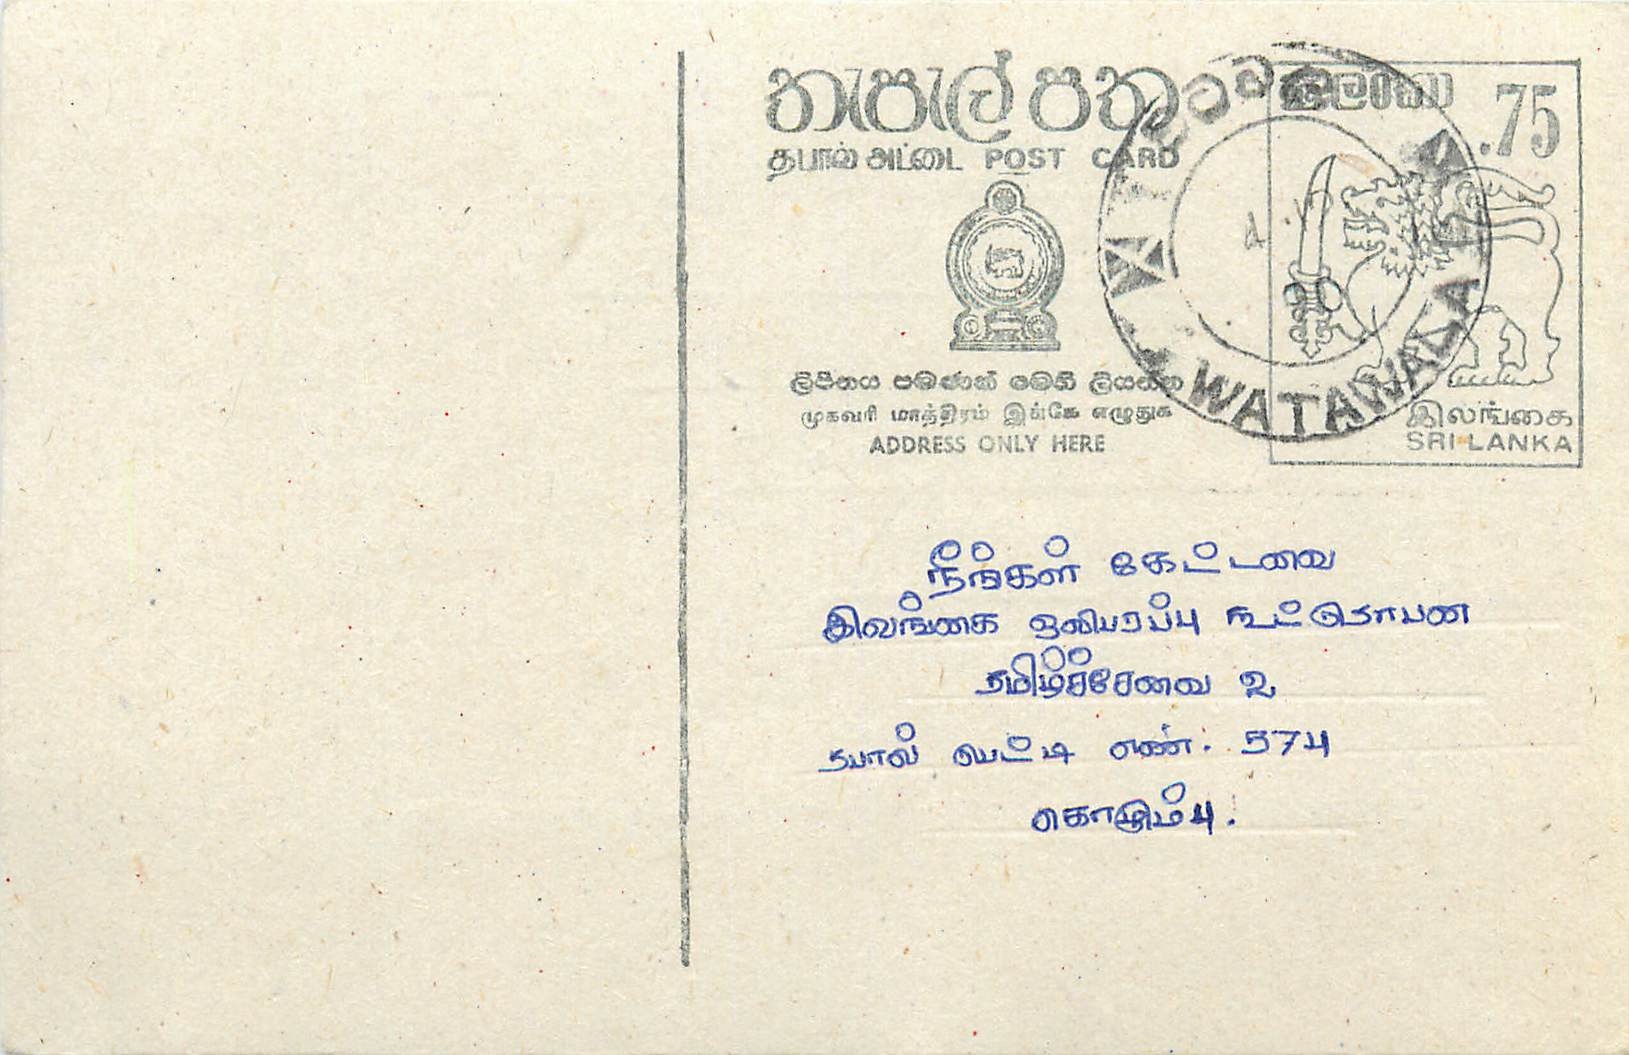 තැපැල් පත
ශ්‍රී ලංකා .75
தபால் அட்டை POST CARD
ලිපිනය පමණක් මෙහි ලියන්න
முகவரி மாத்திரம் இங்கே எழுதுக
ADDRESS ONLY HERE
WATAWALA
இலங்கை
SRI LANKA
நீங்கள் கேட்டவை
இலங்கை ஒலிபரப்பு கூட்டுதாபன
தமிழ்ச்சேவை உ
தபால் பெட்டி எண். 574
கொழும்பு.